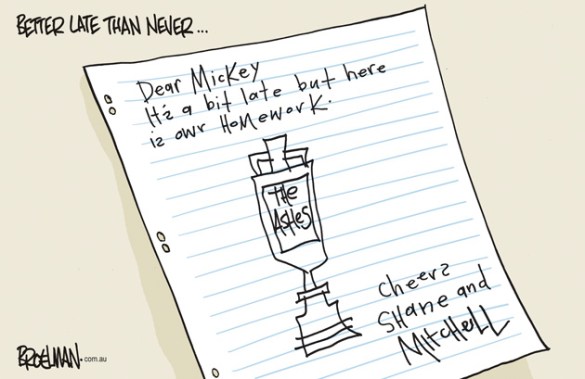 BETTER LATE THAN NEVER...
Dear Mickey
It's a bit late but here
is our HOMEWORK.
The
ASHES
cheers
SHANE and
MITCHELL
BROELMAN.com.au